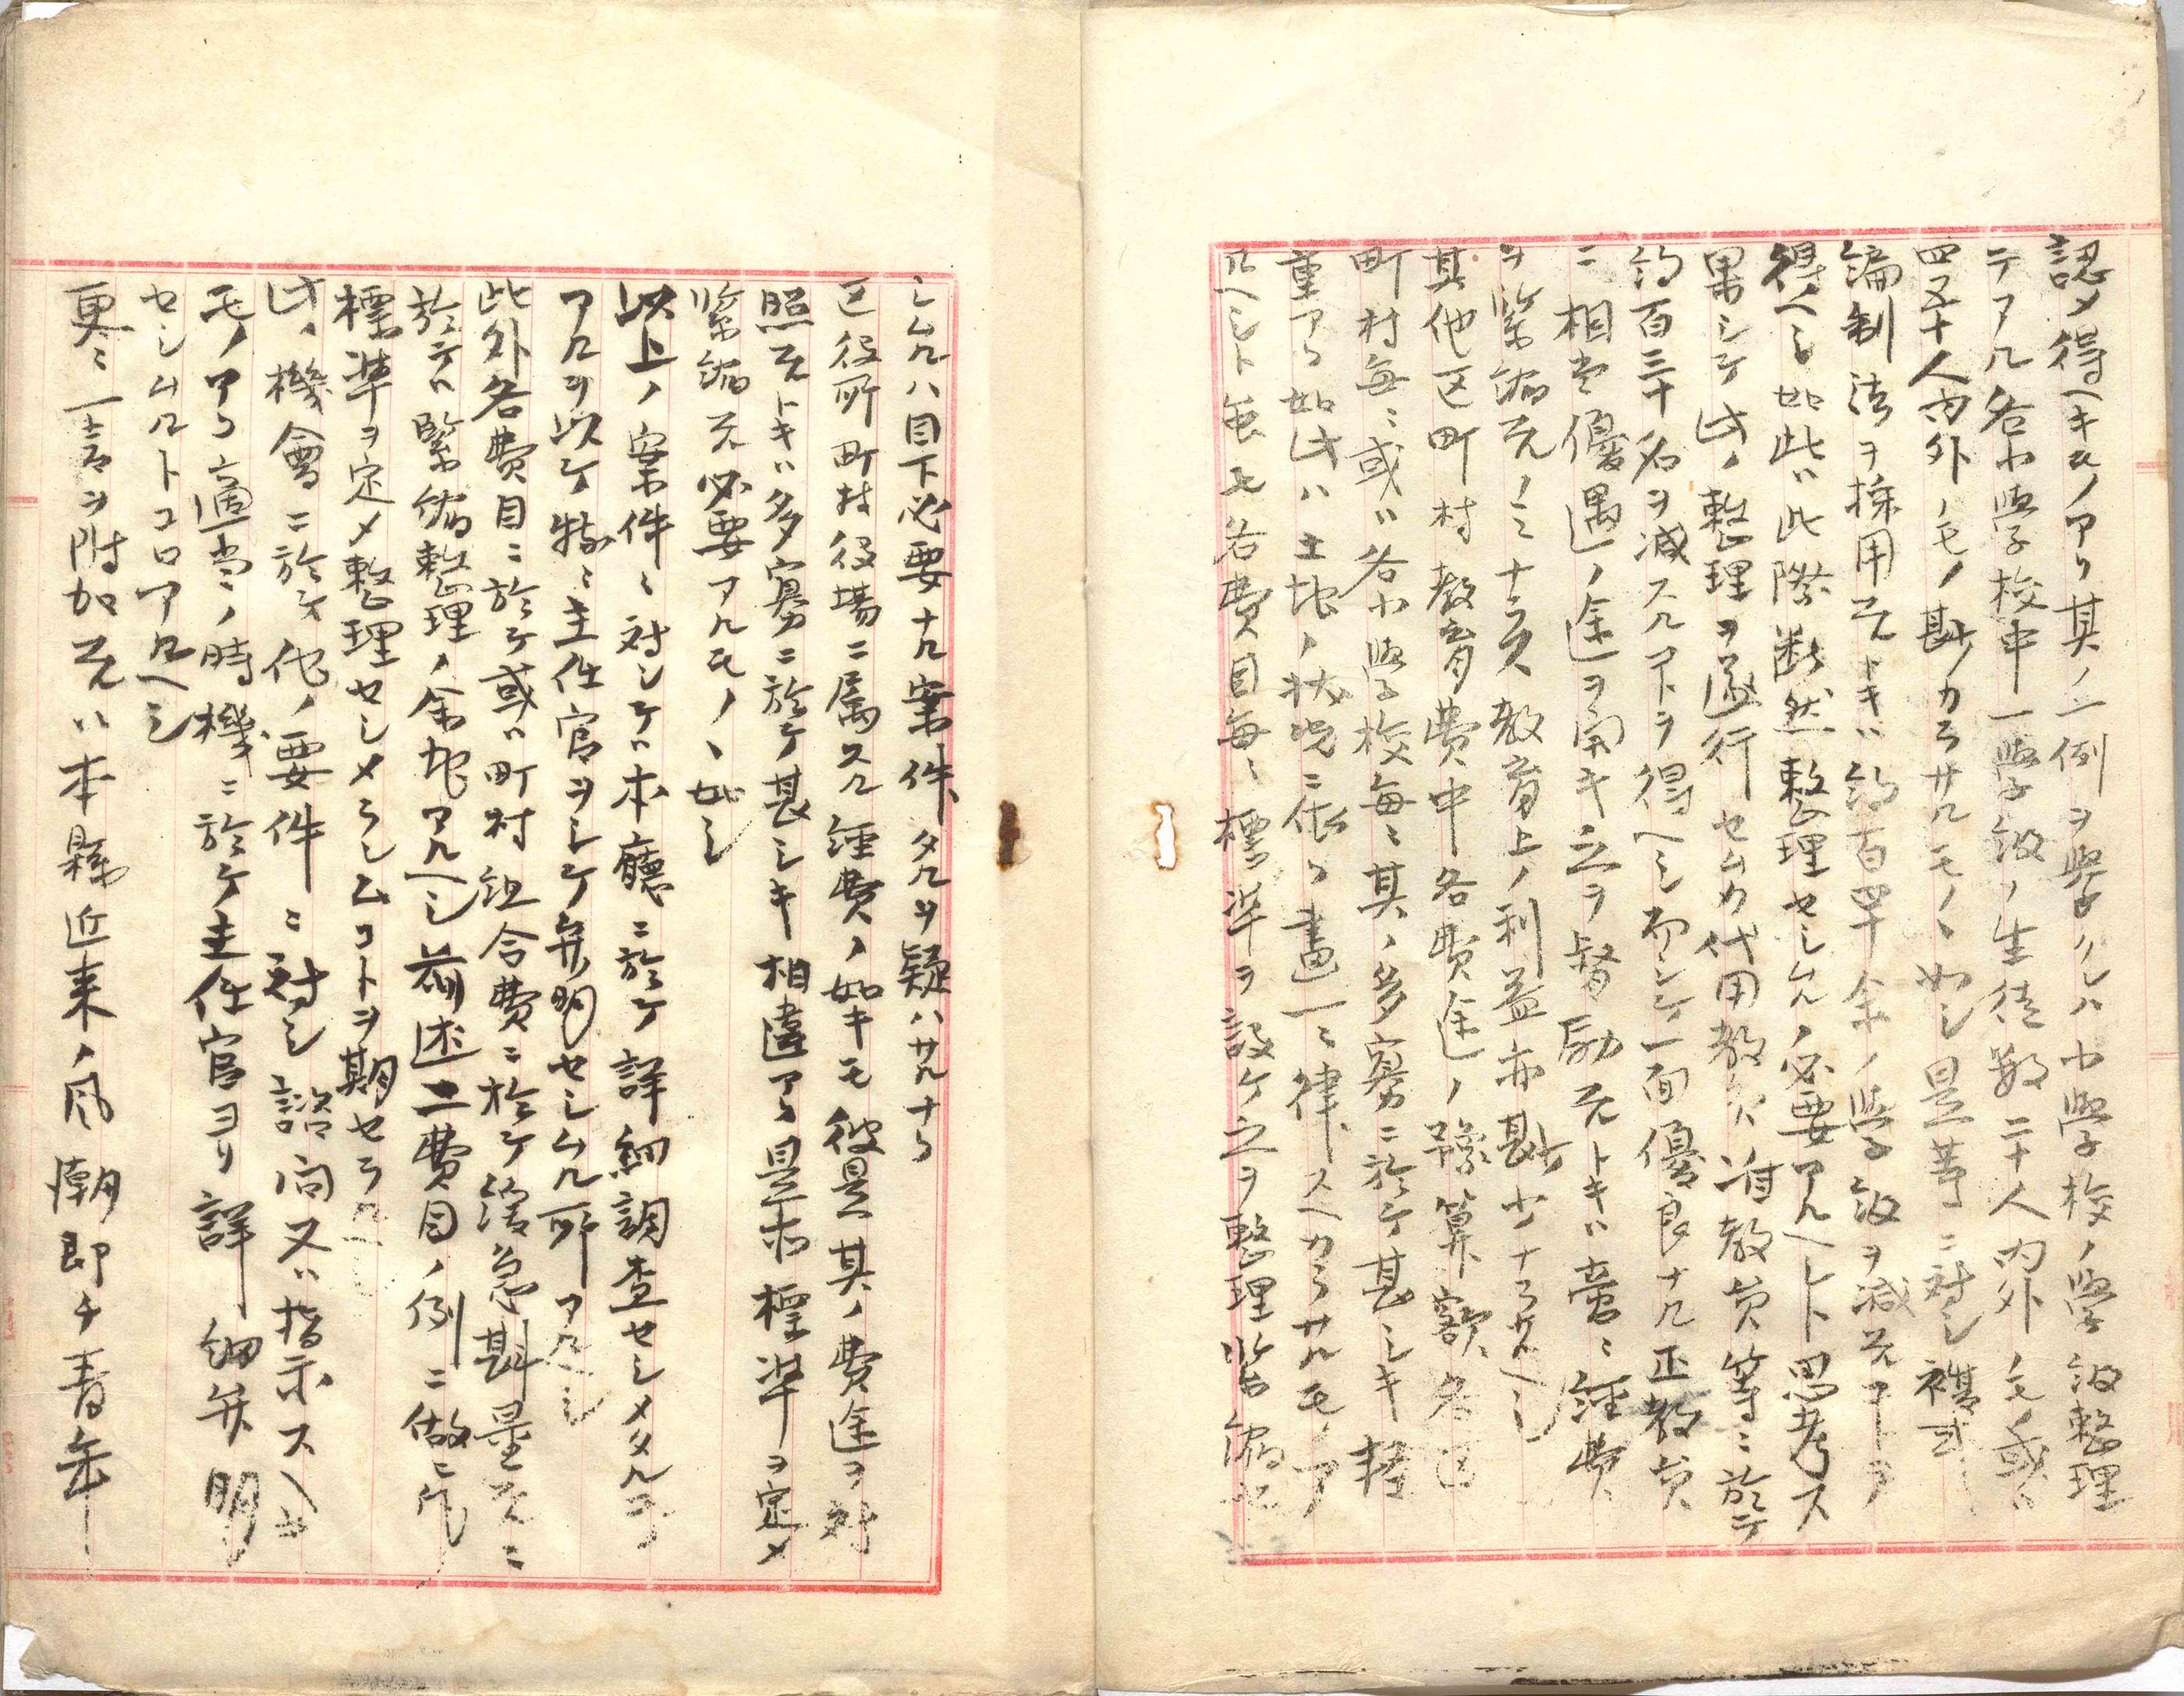 認メ得ヘキモノアリ其ノ一例ヲ挙クレハ小学校ノ学級整理
ニアル各小学校中一学級ノ生徒数二十人内外ノモノ或ハ
四五十人内外ノモノ尠カラサルモノヽ如シ是等ニ対シ複式
編制法ヲ採用スルトキハ約百四十余ノ学級ヲ減スルコトヲ
得ヘシ如此ハ此際断然整理セシムルノ必要アルヘシト思考ス
果シテ此ノ整理ヲ遂行セムカ代用教員准教員等ニ於テ
約百三十名ヲ減スルコトヲ得ヘシ而シテ一面優良ナル正教員
ニ相当優遇ノ途ヲ開キ之ヲ督励スルトキハ啻ニ経費
ヲ緊縮スルノミナラス教育上ノ利益亦尠少ナラサルヘシ
其他区町村教育費中各費途ノ予算額各区
町村毎ニ或ハ各小学校毎ニ其ノ多寡ニ於テ甚シキ軽
重アリ如此ハ土地ノ状況ニ依リ画一ニ律スヘカラサルモノア
ルヘシト雖モ各費目毎ニ標準ヲ設ケ之ヲ整理緊縮セ
シムルハ目下必要ナル案件タルヲ疑ハサルナリ
区役所町村役場ニ属スル経費ノ如キモ彼是其ノ費途ヲ対
照スルトキハ多寡ニ於テ甚シキ相違アリ是亦標準ヲ定メ
緊縮スル必要アルモノヽ如シ
以上ノ案件ニ対シテハ本庁ニ於テ詳細調査セシメタルコト
アルヲ以テ特ニ主任官ヲシテ弁明セシムル所アルヘシ
此外各費目ニ於テ或ハ町村組合費ニ於テ緩急斟量スルニ
於テハ緊縮整理ノ余地アルヘシ前述二費目ノ例ニ倣ニ
標準ヲ定メ整理セシメラレムコトヲ期セラルヘシ
此ノ機会ニ於テ他ノ要件ニ対シ諮問又ハ指示スヘキ
モノアリ適当ノ時機ニ於テ主任官ヨリ詳細弁明
セシムルトコロアルヘシ
更ニ一言ヲ附加スルハ本縣近来ノ風潮即チ青年